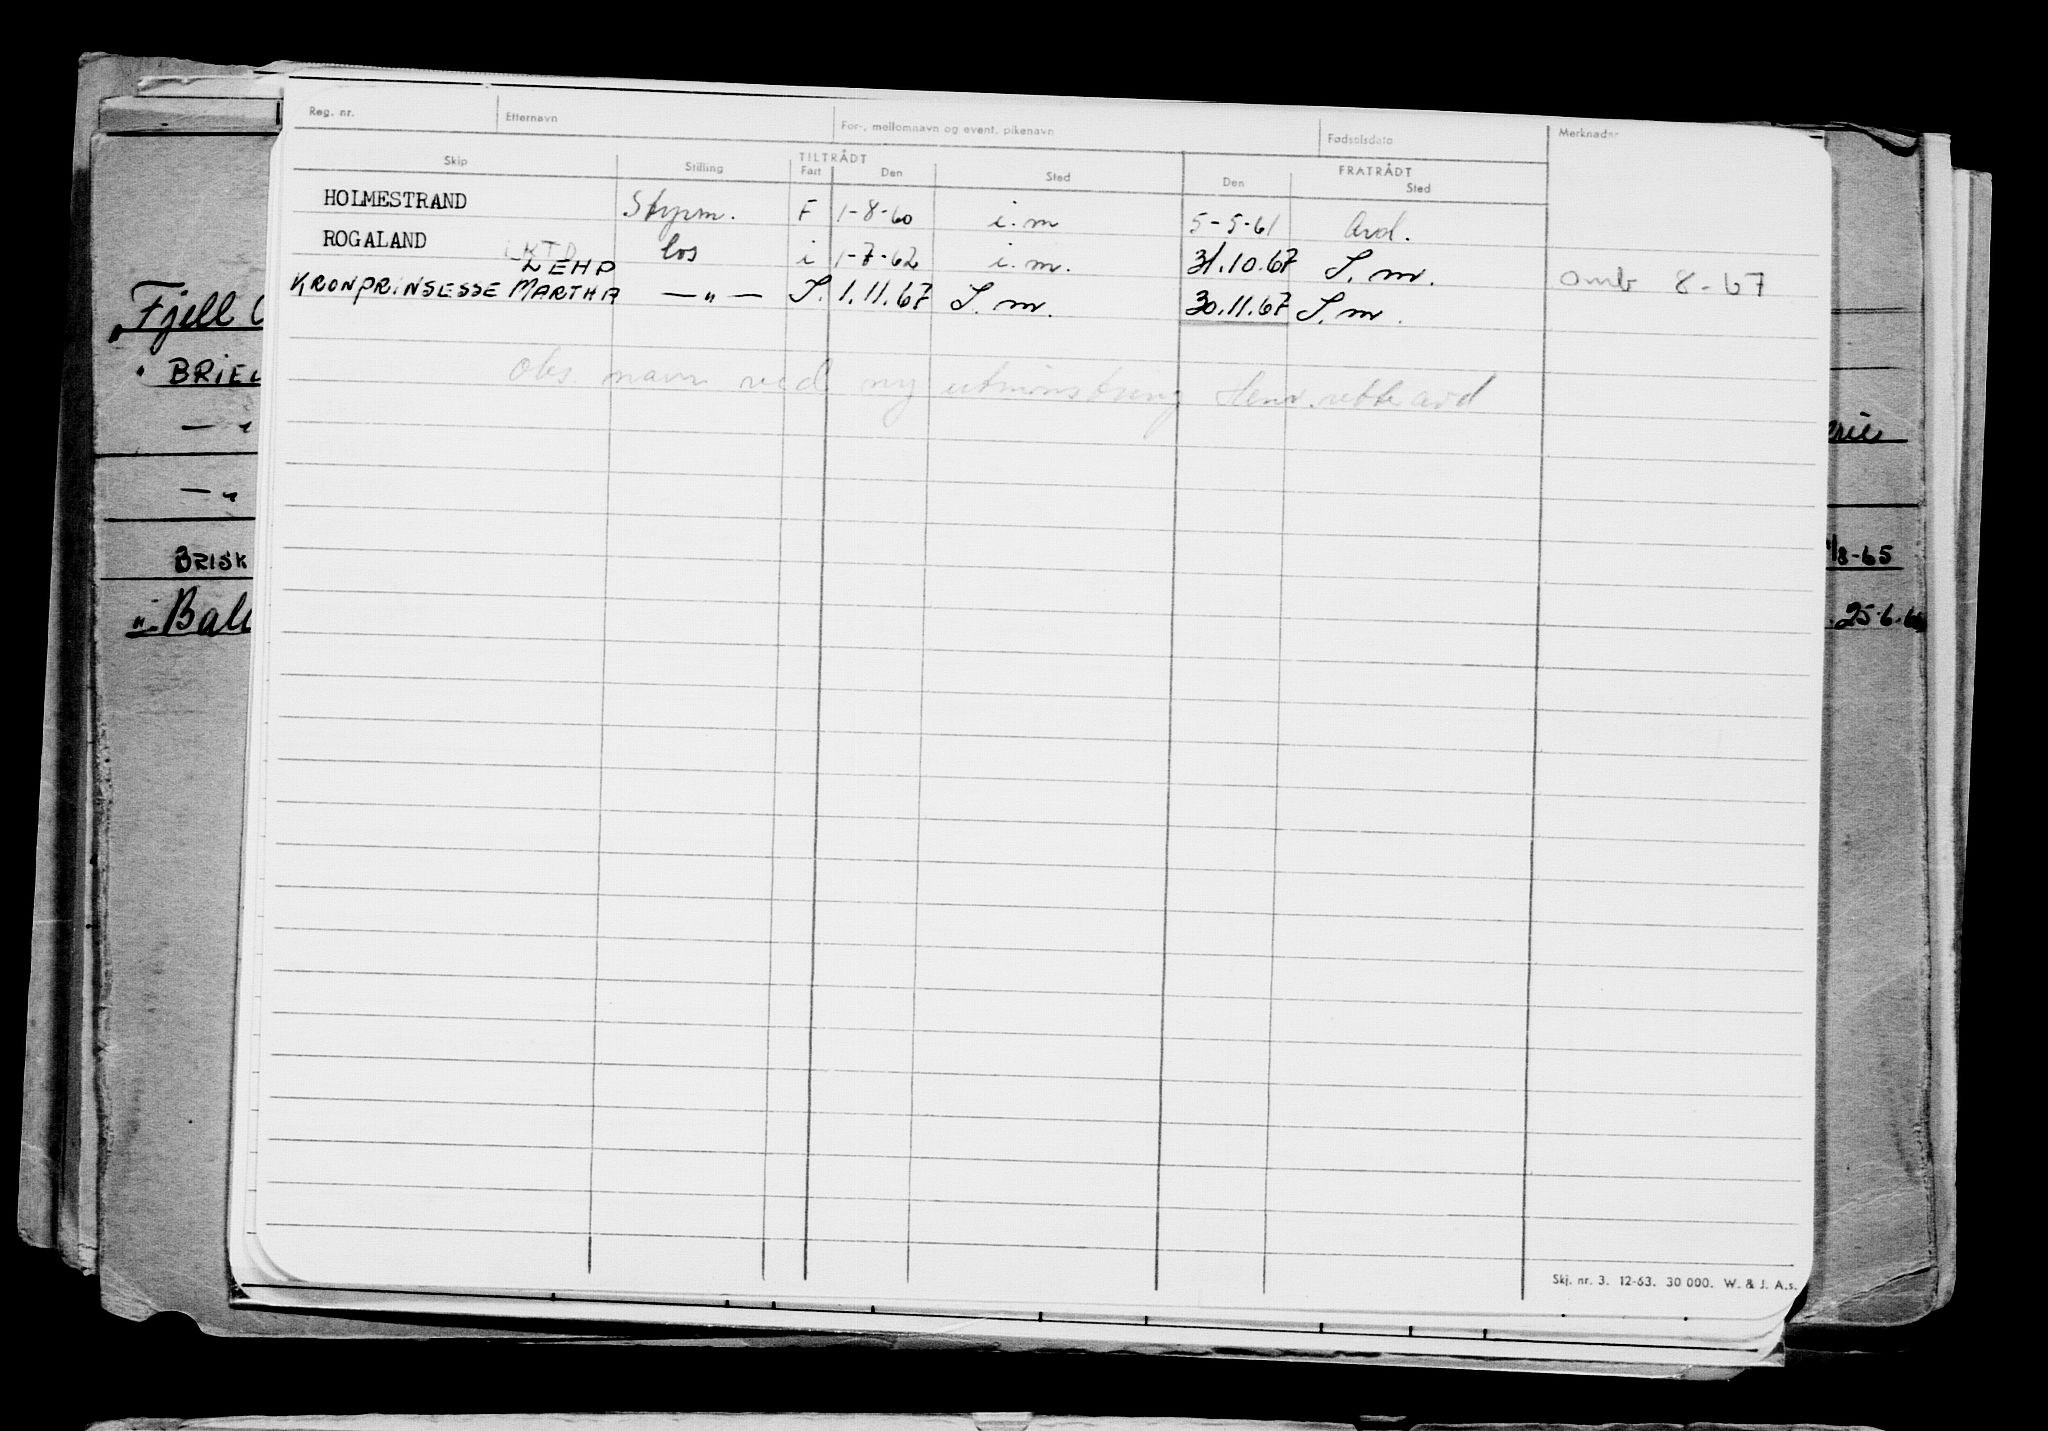 Reg. nr. Etternavn For-, mellomnavn og event. pikenavn Fødselsdato Merknader
TILTRÅDT FRATRÅDT
Skip Stilling Fart Den Sted Den Sted
HOLMESTRAND Styrm. F 1-8-60 i.m 5-5-61 Avd.
ROGALAND LKTD los i 1-7-62 i.m. 31.10.67 S.m. omb 8-67
LEHP
KRONPRINSESSE MARTHA —„— S. 1.11.67 S.m. 30.11.67 S.m.
Obs. navn ved ny utmønstring Henv. rette avd
Fjell
BRIE
—„
—„
BRISK /8-65
„ Bal 25-6-6
Skj. nr. 3. 12-63. 30 000. W. & J. A.s.